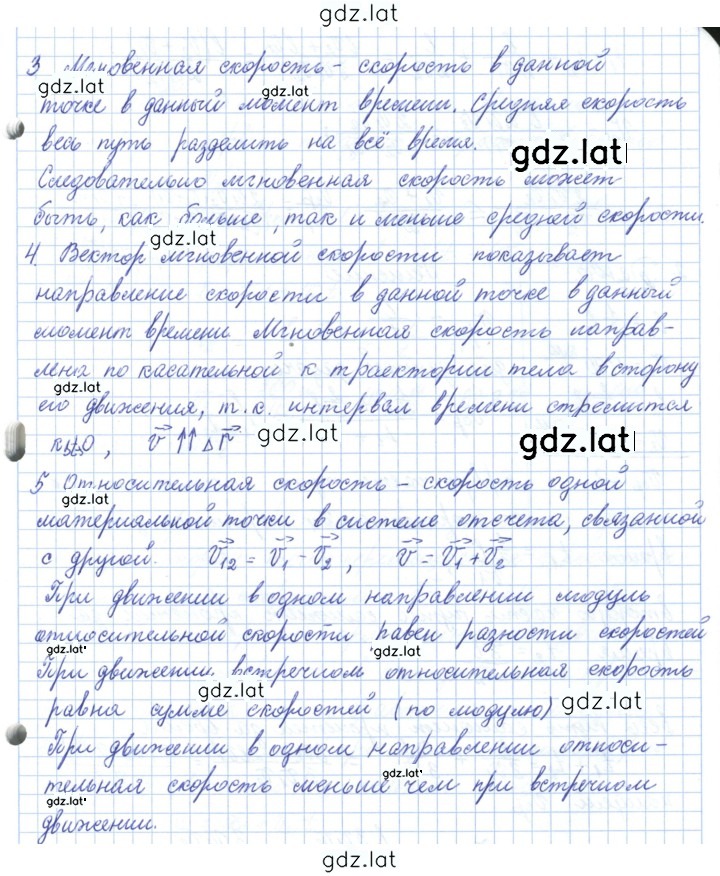 gdz.lat
3 Мгновенная скорость - скорость в данной
gdz.lat gdz.lat
точке в данный момент времени. Средняя скорость
весь путь разделить на всё время.
gdz.lat
Следовательно мгновенная скорость может
быть, как больше, так и меньше средней скорости.
gdz.lat
4. Вектор мгновенной скорости показывает
направление скорости в данной точке в данный
момент времени Мгновенная скорость направ-
лена по касательной к траектории тела в сторону
gdz.lat
его движения, т.к. интервал времени стремится
к 0, v⃗ ↑↑ Δr⃗ gdz.lat
gdz.lat
5 Относительная скорость - скорость одной
материальной точки в системе отсчета, связанной
с другой. V⃗₁₂ = V⃗₁ - V⃗₂, v⃗ = V⃗₁ + V⃗₂
При движении в одном направлении модуль
относительной скорости равен разности скоростей
gdz.lat gdz.lat
При движении встречном относительная скорость
gdz.lat gdz.lat
равна сумме скоростей (по модулю)
При движении в одном направлении относи-
gdz.lat
тельная скорость меньше чем при встречном
gdz.lat
движении.
gdz.lat